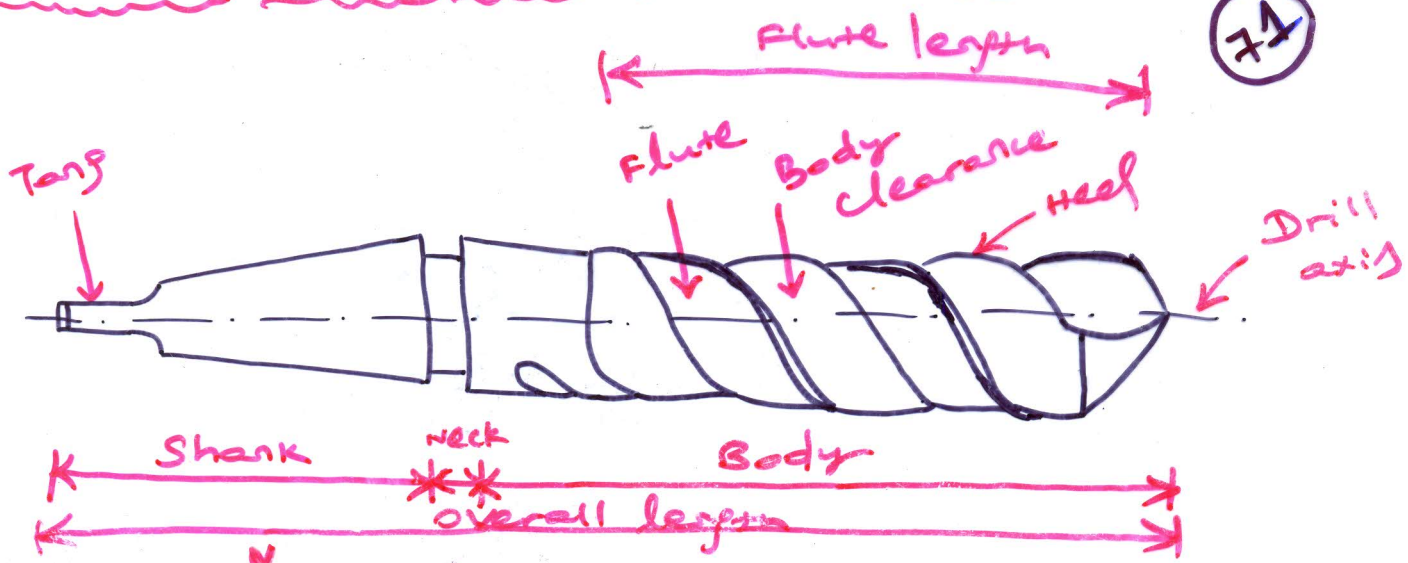 Flute length
71
Flute
Body
clearance
Heel
Tang
Drill
axis
Shank
Neck
Body
overall length